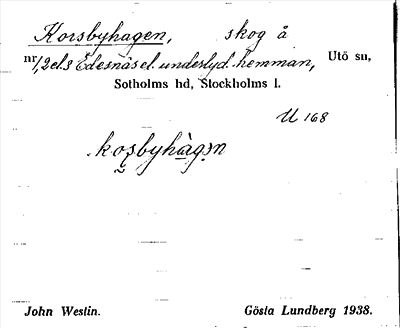 Korsbyhagen, skog å
nr 1,2 el. 3 Edesnäs el. underlyd. hemman, Utö sn,
Sotholms hd, Stockholms l.
U 168
koṣbyhàgən
John Westin. Gösta Lundberg 1938.